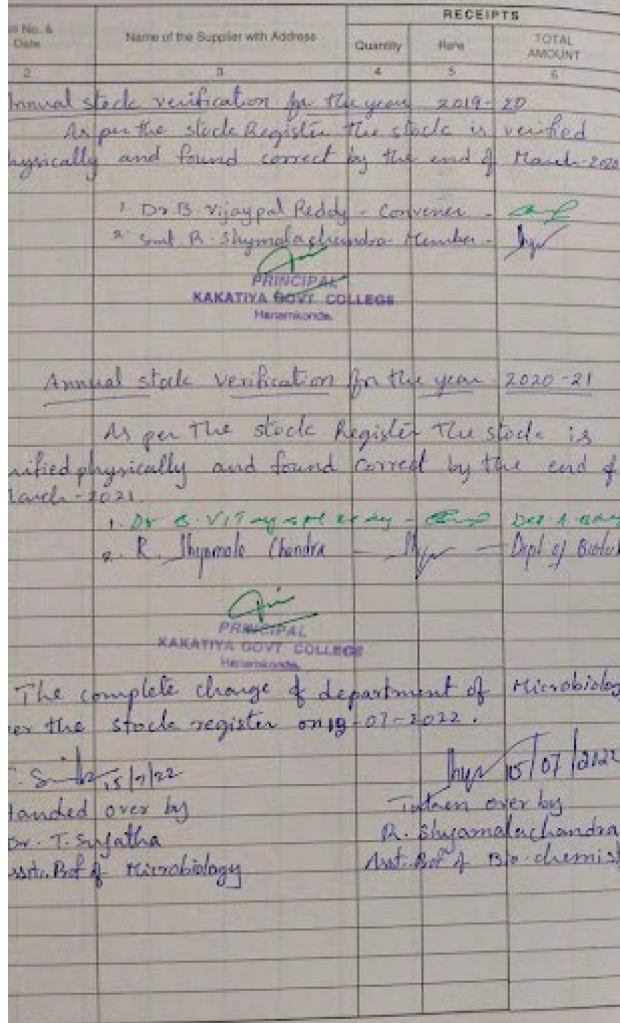 RECEIPTS
ll No. &
Date
Name of the Supplier with Address
Quantity
Rate
TOTAL
AMOUNT
2 3 4 5 6
Annual stock verification for the year 2019-20
As per the stock Register the stock is verified
hysically and found correct by the end of March-2020
1. Dr B. Vijaypal Reddy - Convener -
2. Smt. R. Shymalachandra - Member -
PRINCIPAL
KAKATIYA GOVT COLLEGE
Hanamkonda.
Annual stock verification for the year 2020-21
As per The stock Register The stock is
rified physically and found correct by the end of
March-2021.
1. Dr B. Vijaypal Reddy -
2. R. Shyamala Chandra - - Dept of
PRINCIPAL
KAKATIYA GOVT COLLEGE
Hanamkonda.
The complete charge of department of Microbiology
er the stock register on 19-07-2022.
15/7/22
15/07/2022
Handed over by
Taken over by
Dr. T. Sujatha
R. Shyamalachandra
Asst. Prof of Microbiology
Asst. Prof of Bio-chemist